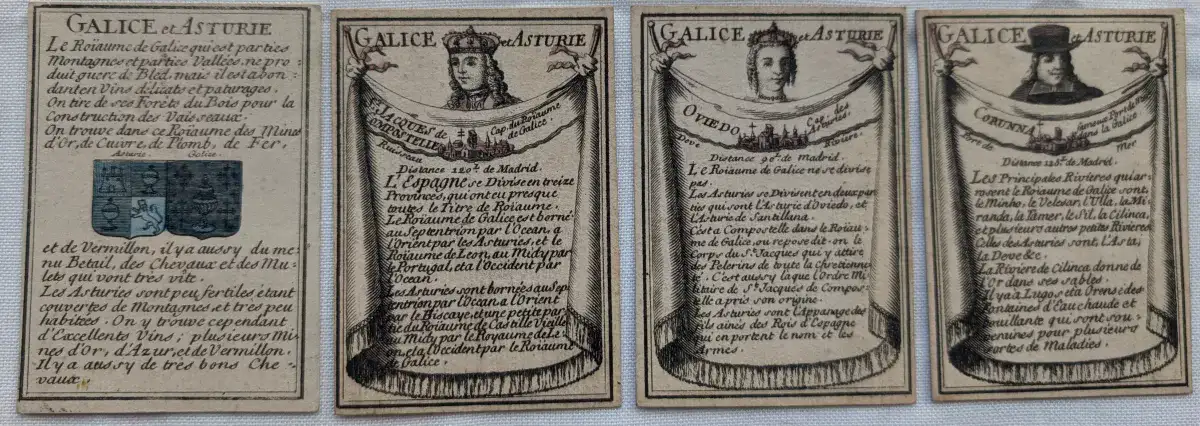 GALICE et ASTURIE
Le Roïaume de Galice qui est parties
Montagnes et parties Vallées, ne pro-
duit guere de Bled, mais il est abon-
dant en Vins délicats et paturages.
On tire de ses Forêts du Bois pour la
Construction des Vaisseaux.
On trouve dans ce Roïaume des Mines
d'Or, de Cuivre, de Plomb, de Fer,
Asturie Galice
et de Vermillon, il y a aussy du me-
nu Betail, des Chevaux et des Mu-
lets qui vont très vîte.
Les Asturies sont peu fertiles étant
couvertes de Montagnes, et tres peu
habitées. On y trouve cependant
d'Excellents Vins; plusieurs Mi-
nes d'Or, d'Azur, et de Vermillon.
Il y a aussy de très bons Che-
vaux.
GALICE et ASTURIE
St. JACQUES de COMPOSTELLE
Cap. du Roïaume de Galice.
Ruisseau
Distance 120 l. de Madrid.
L'Espagne se Divise en treize
Provinces, qui ont eu presque
toutes le Titre de Roïaume.
Le Roïaume de Galice est borné
au Septentrion par l'Ocean, a
l'Orient par les Asturies, et le
Roïaume de Leon, au Midy par
le Portugal, et a l'Occident par
l'Ocean.
Les Asturies sont bornées au Sep-
tentrion par l'Ocean a l'Orient
par le Biscaye, et une petite par-
tie du Roïaume de Castille Vieille
au Midy par le Royaume de Le-
on, et a l'Occident par le Roïaume
de Galice.
GALICE et ASTURIE
OVIEDO
Cap. des Asturies.
Deve Riviere.
Distance 90 l. de Madrid.
Le Roïaume de Galice ne se divise
pas.
Les Asturies se Divisent en deux par-
ties qui sont l'Asturie d'Oviedo, et
l'Asturie de Santillana.
C'est a Compostelle dans le Roïau-
me de Galice, ou repose dit-on le
Corps du St. Jacques qui y attire
des Pelerins de toute la Chrétienne-
té. C'est aussy la que l'Ordre Mi-
litaire de St. Jacques de Compos-
telle a pris son origine.
Les Asturies sont l'Apparage des
fils ainés des Rois d'Espagne
qui en portent le nom et les
Armes.
GALICE et ASTURIE
CORUNNA
fameux Port de
dans la Galice
Port de Mer
Distance 125 l. de Madrid.
Les Principales Rivieres qui ar-
rosent le Roïaume de Galice sont,
le Minho, le Velesar, l'Ulla, la Mi-
randa, la Tamer, le Sil, la Cilinca,
et plusieurs autres petites Rivieres
Celles des Asturies sont l'Asta,
la Deve &c.
La Riviere de Cilinca donne de
l'Or dans ses sables.
Il y a a Lugos, et a Orense des
Fontaines d'Eau chaude et
bouillante qui sont sou-
veraines pour plusieurs
sortes de Maladies.